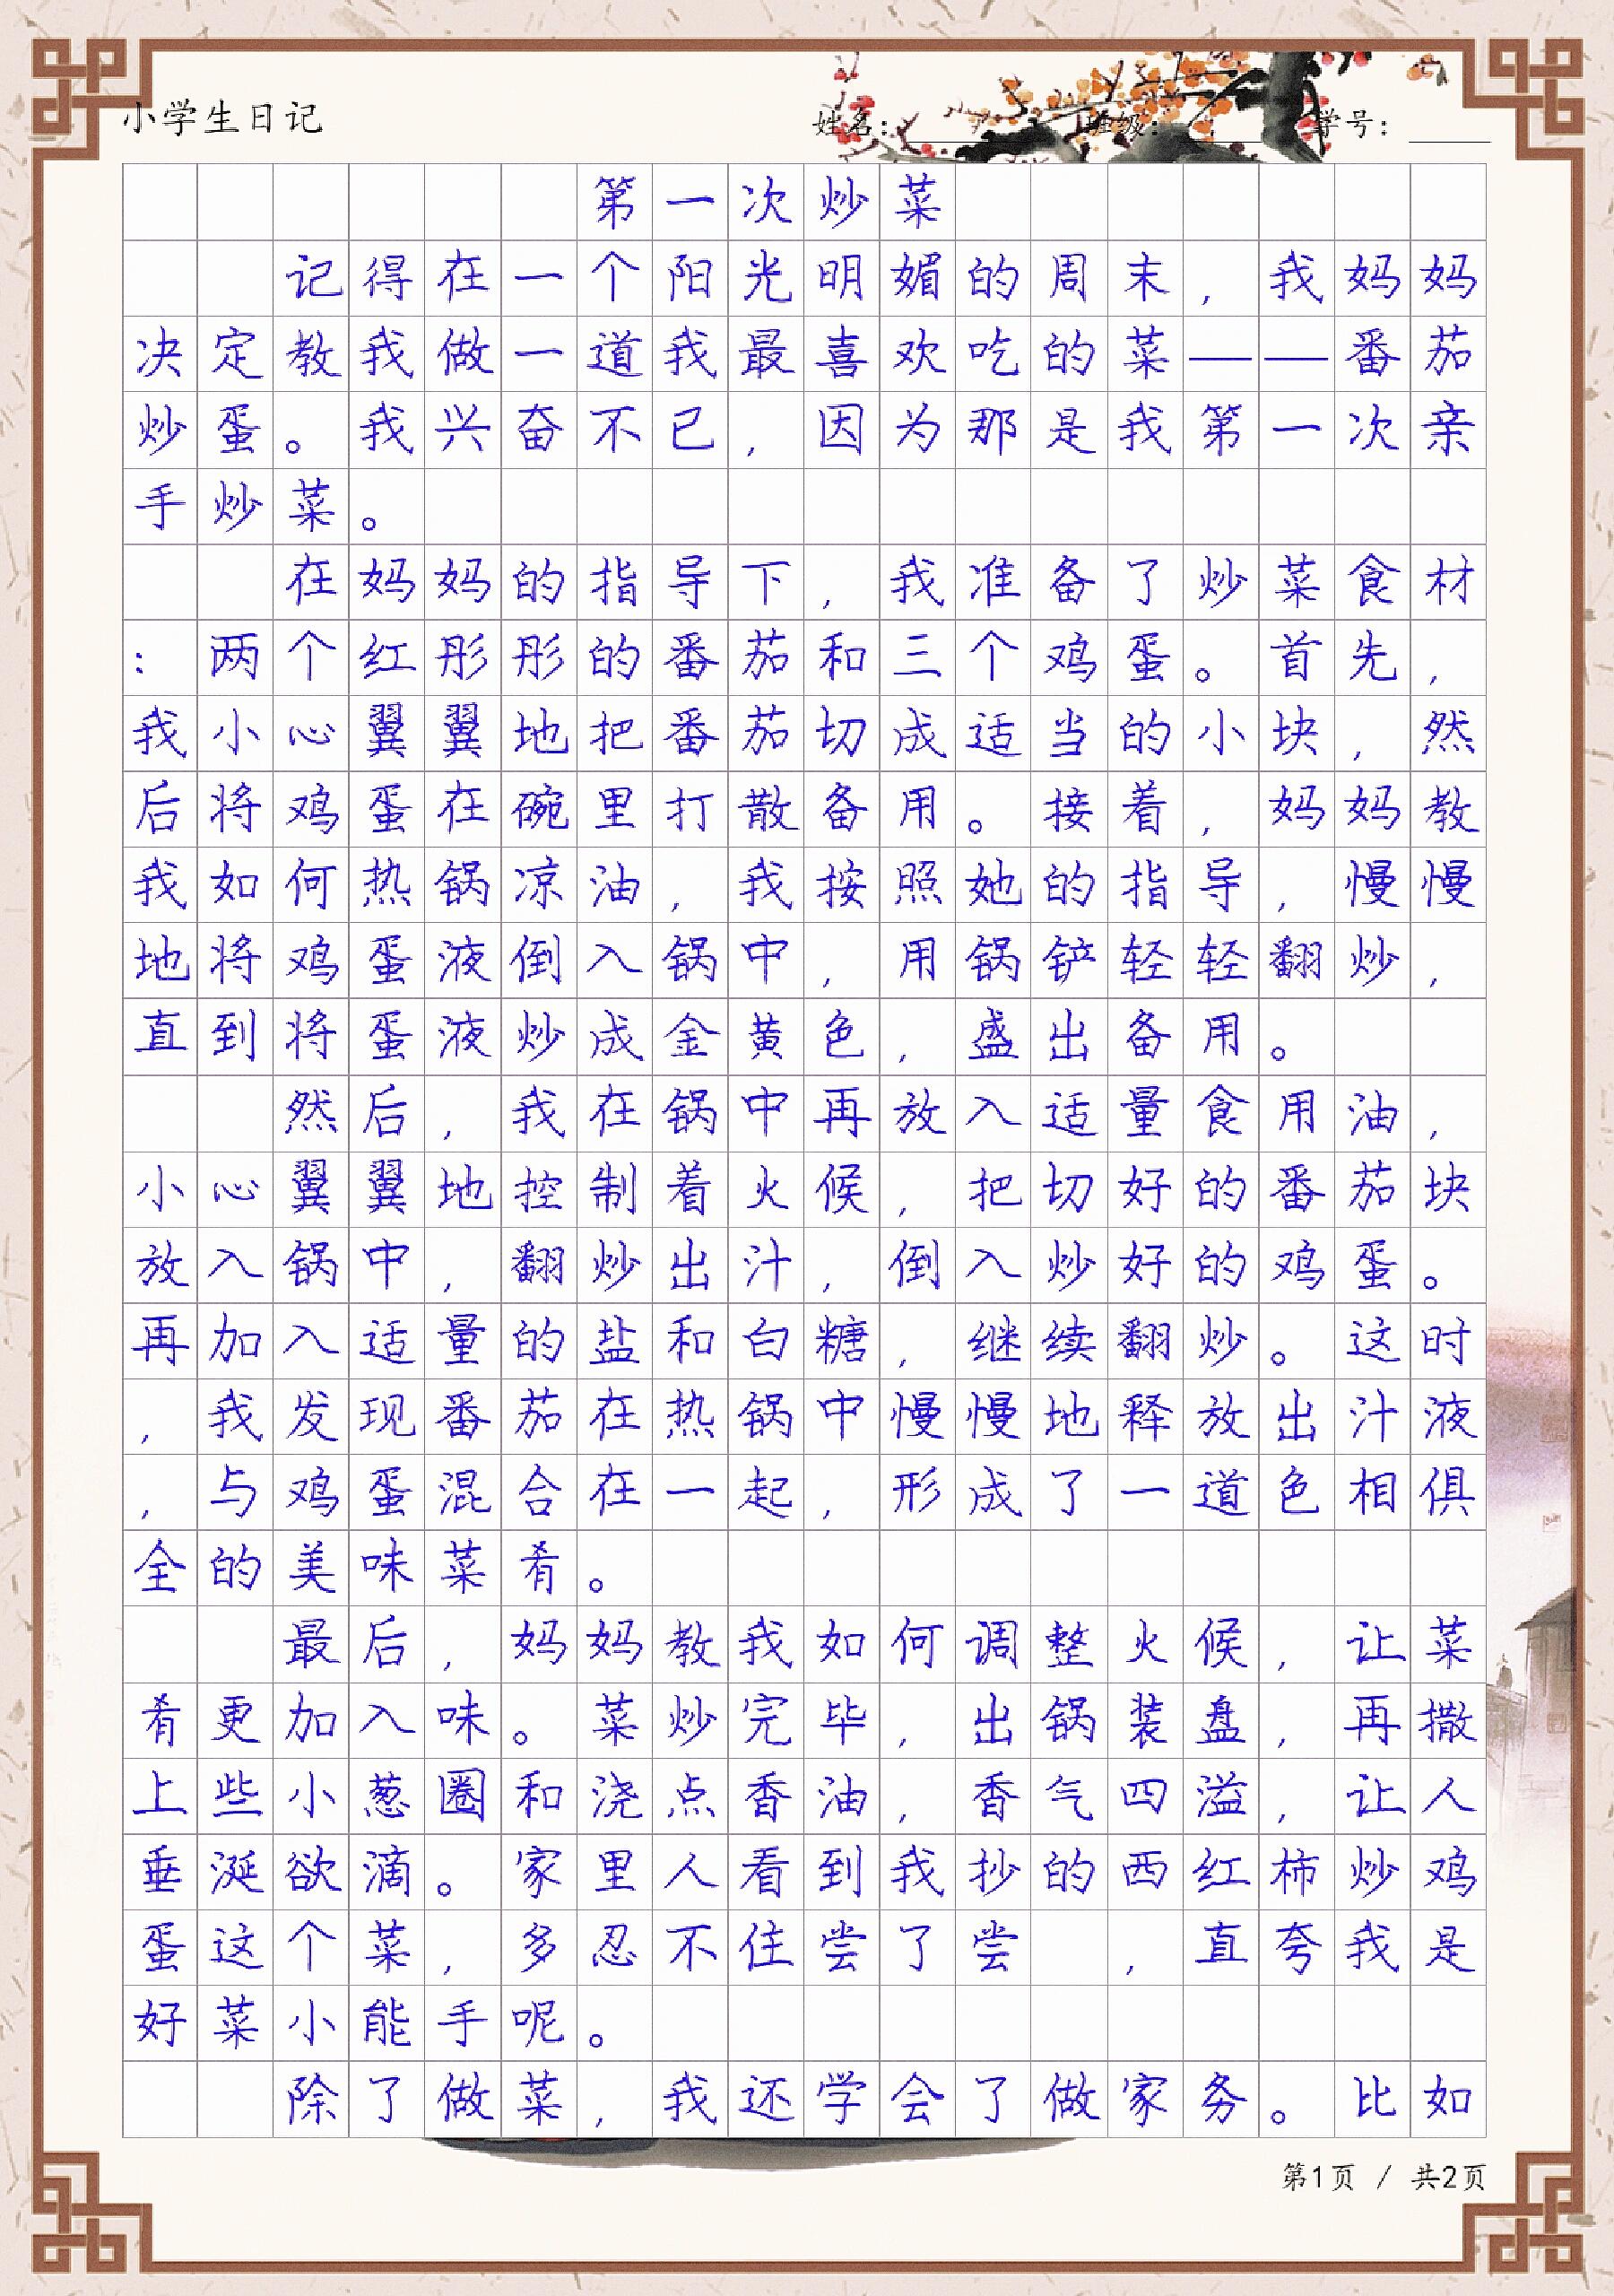 小学生日记 姓名：______ 班级：______ 学号：______
第一次炒菜
记得在一个阳光明媚的周末，我妈妈
决定教我做一道我最喜欢吃的菜——番茄
炒蛋。我兴奋不已，因为那是我第一次亲
手炒菜。
在妈妈的指导下，我准备了炒菜食材
：两个红彤彤的番茄和三个鸡蛋。首先，
我小心翼翼地把番茄切成适当的小块，然
后将鸡蛋在碗里打散备用。接着，妈妈教
我如何热锅凉油，我按照她的指导，慢慢
地将鸡蛋液倒入锅中，用锅铲轻轻翻炒，
直到将蛋液炒成金黄色，盛出备用。
然后，我在锅中再放入适量食用油，
小心翼翼地控制着火候，把切好的番茄块
放入锅中，翻炒出汁，倒入炒好的鸡蛋。
再加入适量的盐和白糖，继续翻炒。这时
，我发现番茄在热锅中慢慢地释放出汁液
，与鸡蛋混合在一起，形成了一道色相俱
全的美味菜肴。
最后，妈妈教我如何调整火候，让菜
肴更加入味。菜炒完毕，出锅装盘，再撒
上些小葱圈和浇点香油，香气四溢，让人
垂涎欲滴。家里人看到我抄的西红柿炒鸡
蛋这个菜，多忍不住尝了尝 ，直夸我是
好菜小能手呢。
除了做菜，我还学会了做家务。比如
第1页 / 共2页